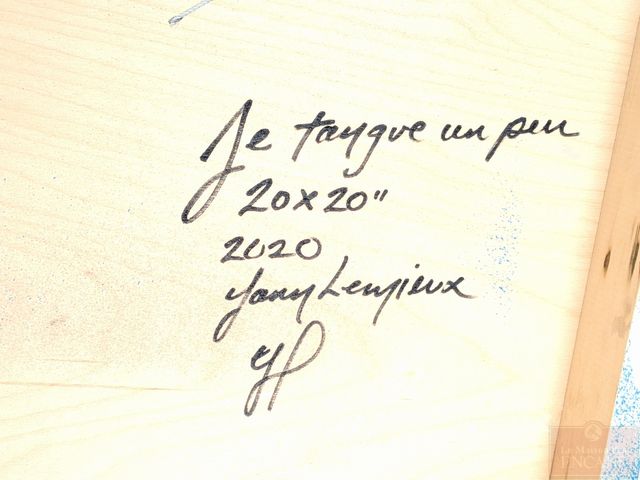 Je tangue un peu
20x20"
2020
Yany Lemieux